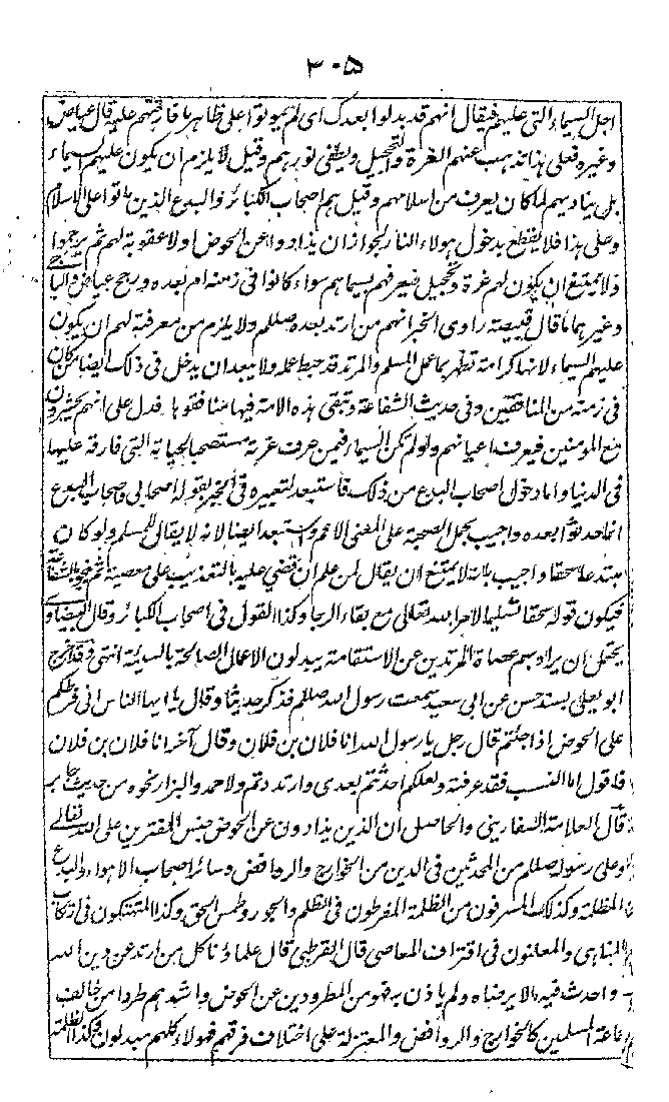 ٣٠٥
اجل السيماء التى عليهم فيقال انهم قد بدلوا بعدك اى لم يموتوا على ظاهر ما فارقتهم عليه قال عياض
وغيره فعلى هذا يذهب عنهم الغرة والتحجيل ويطفى نورهم وقيل لا يلزم ان يكون عليهم السيماء
بل يناديهم لما كان يعرف من اسلامهم وقيل هم اصحاب الكبائر والبدع الذين ماتوا على الاسلام
وعلى هذا فلا يقطع بدخول هولاء النار لجواز ان يذادوا عن الحوض اولا عقوبة لهم ثم يرحموا
ولا يمتنع ان يكون لهم غرة وتحجيل فيعرفهم بسيماهم سواء كانوا فى زمنه ام بعده ورجح عياض والباجى
وغيرهما ما قال قبيصة راوى الخبر انهم من ارتد بعده صللم ولا يلزم من معرفته لهم ان يكون
عليهم السيماء لانها كرامة تظهر بها عمل المسلم والمرتد قد حبط عمله ولا يبعد ان يدخل فى ذلك ايضا من كان
فى زمنه من المنافقين وفى حديث الشفاعة وتبقى هذه الامة فيها منافقوها فدل على انهم يحشرون
مع المومنين فيعرف اعيانهم ولو لم تكن السيماء فمن عرف غرته مستصحبا لحياته التى فارقه عليها
فى الدنيا واما دخول اصحاب البدع من ذلك فاستبعد لتعبيره فى الخبر بقوله اصحابى واصحاب البدع
انما حدثوا بعده واجيب بحمل الصحبة على المعنى الاعم واستبعد ايضا لانه لا يقال للمسلم ولو كان
مبتدعا سحقا واجيب بانه لا يمتنع ان يقال لمن علم ان قضي عليه بالتعذيب على معصية ثم ينجو بالشفاعة
فيكون قوله سحقا تسليما لامر الله تعالى مع بقاء الرجا وكذا القول فى اصحاب الكبائر وقال البيضاوى
يحتمل ان يراد بهم عصاة المرتدين عن الاستقامة يبدلون الاعمال الصالحة بالسيئة انتهى وقد اخرج
ابو يعلى بسند حسن عن ابى سعيد سمعت رسول الله صللم فذكر حديثا وقال يا ايها الناس انى فرطكم
على الحوض اذا جئتم قال رجل يا رسول الله انا فلان بن فلان وقال آخر انا فلان بن فلان
فاقول اما النسب فقد عرفته ولعلكم احدثتم بعدى وارتددتم ولاحمد والبزار نحوه من حديث جابر
قال العلامة السفارينى والحاصل ان الذين يذادون عن الحوض جنس المفترين على الله تعالى
وعلى رسوله صللم من المحدثين فى الدين من الخوارج والروافض وسائر اصحاب الاهواء والبدع
المظلة وكذلك المسرفون من الظلمة المفرطون فى الظلم والجور وطمس الحق وكذا المتهتكون فى ارتكاب
المناهى والمعلنون فى اقتراف المعاصى قال القرطبى قال علماؤنا كل من ارتد عن دين الله
واحدث فيه ما لا يرضاه ولم ياذن به فهو من المطرودين عن الحوض واشدهم طردا من خالف
جماعة المسلمين كالخوارج والروافض والمعتزلة على اختلاف فرقهم فهولاء كلهم مبدلون وكذا الظلمة